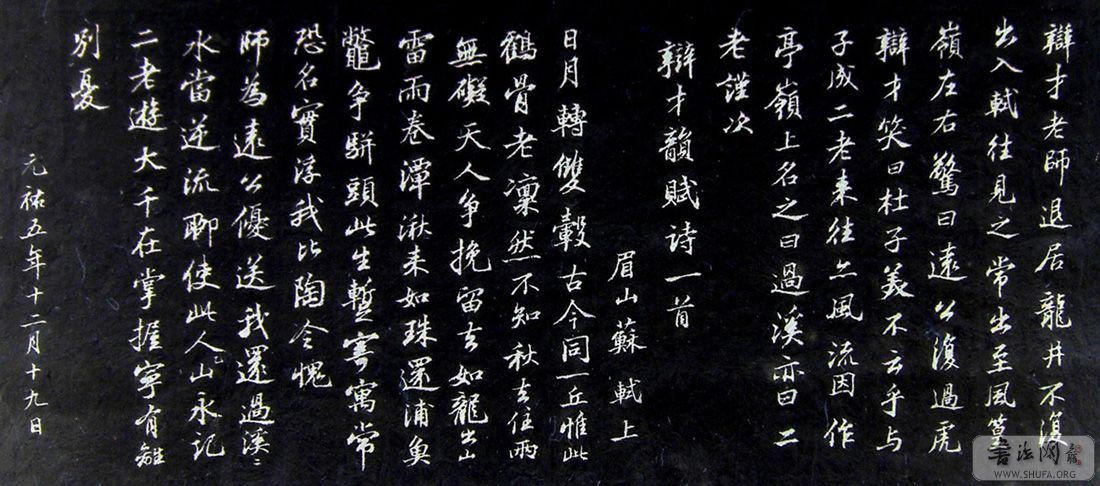 辯才老師退居龍井不復
出入軾往見之常出至風篁
嶺左右驚曰遠公復過虎
辯才笑曰杜子美不云乎與
子成二老來往亦風流因作
亭嶺上名之曰過溪亦曰二
老謹次
辯才韻賦诗一首
眉山蘇軾上
日月轉雙轂古今同一丘惟此
鶴骨老凜然不知秋去住兩
無礙天人争挽留去如龍出山
雷雨卷潭湫来如珠還浦魚
鼈争駢頭此生暫寄寓常
恐名實浮我比陶令愧
師為遠公優送我還過溪〻
水當逆流聊使此人山永記
二老遊大千在掌握寧有離
别憂
元祐五年十二月十九日
書法网
WWW.SHUFA.ORG